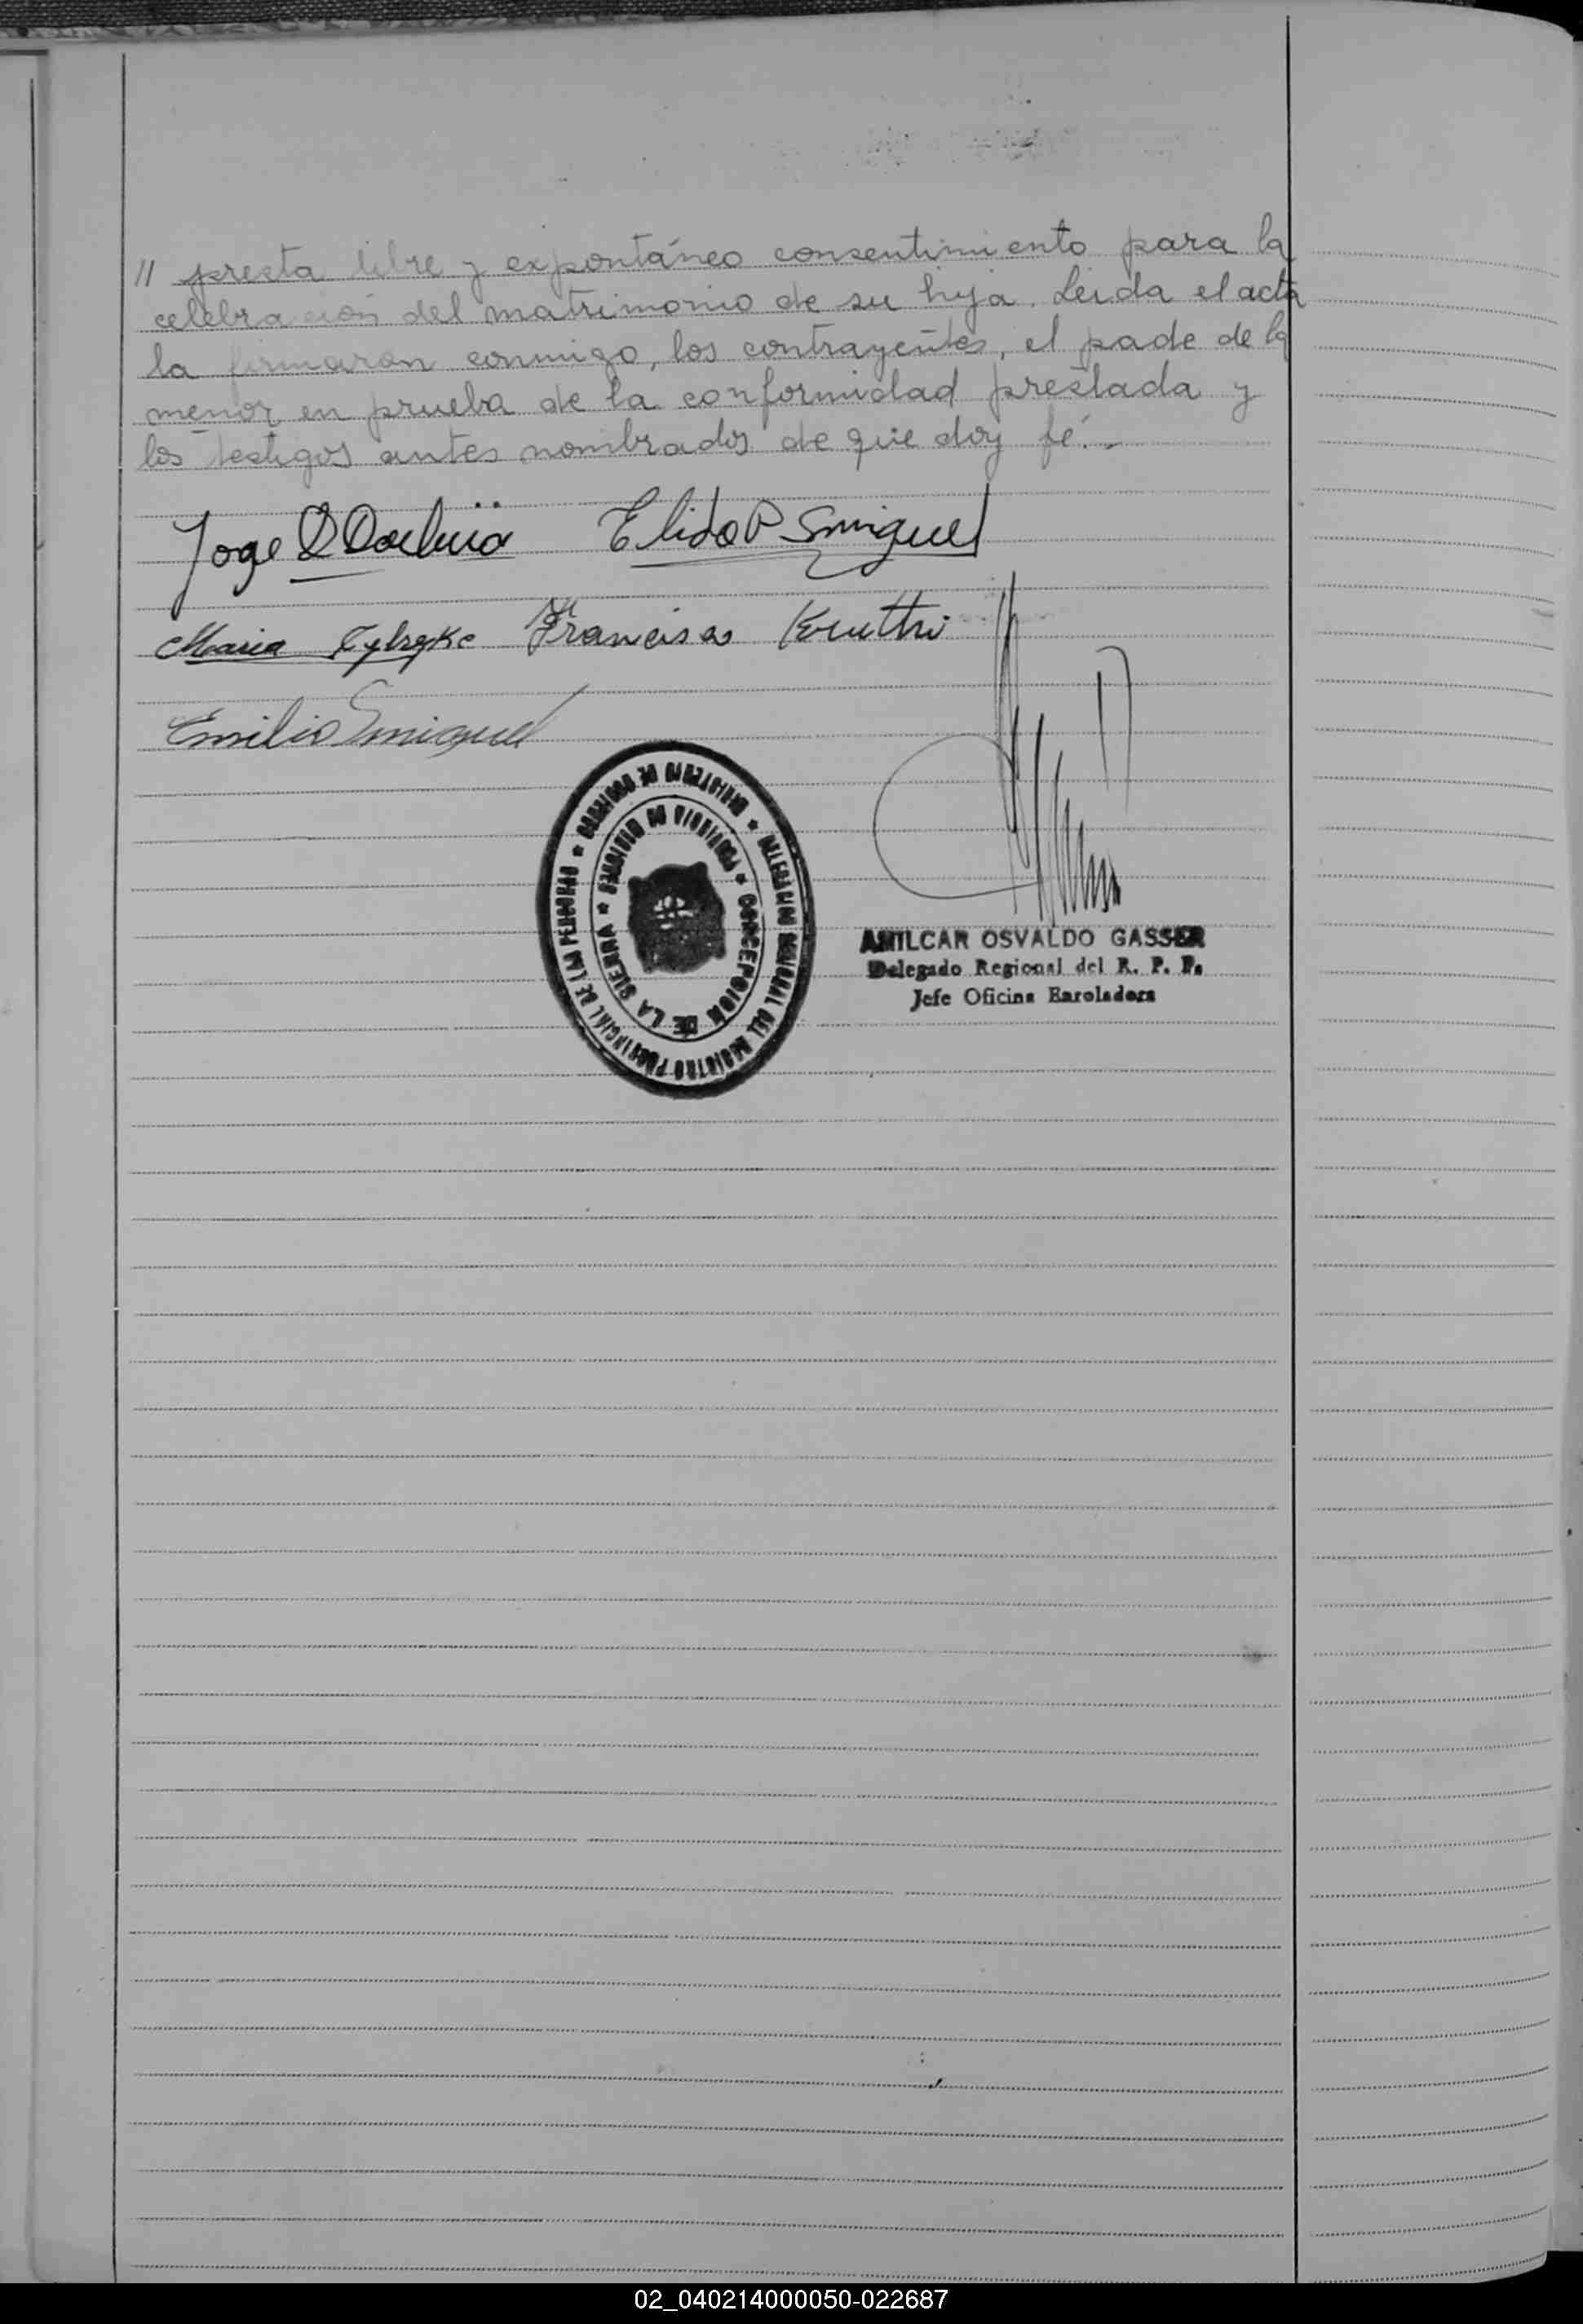 // presta libre y expontáneo consentimiento para la
celebración del matrimonio de su hija. Leida el acta
la firmaron conmigo, los contrayentes, el pade de la
menor en prueba de la conformidad prestada y
los testigos antes nombrados de que doy fé.-
Jorge Elido P Smiguel
Maria Francisco
Emilio Smiguel
MINISTERIO DE GOBIERNO * DELEGACION REGIONAL DEL REGISTRO PROVINCIAL DE LAS PERSONAS *
PROVINCIA DE MISIONES * CONCEPCION DE LA SIERRA *
AMILCAR OSVALDO GASSER
Delegado Regional del R. P. P.
Jefe Oficina Enroladora
02_040214000050-022687